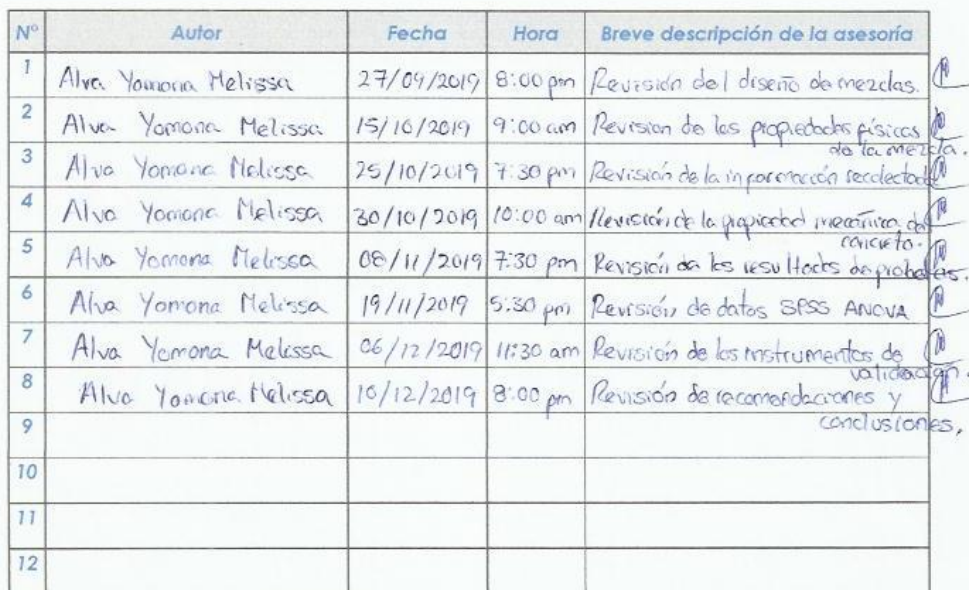 N° Autor Fecha Hora Breve descripción de la asesoría
1 Alva Yomona Melissa 27/09/2019 8:00 pm Revisión del diseño de mezclas.
2 Alva Yomona Melissa 15/10/2019 9:00 am Revision de las propiedades físicas
de la mezcla.
3 Alva Yomona Melissa 25/10/2019 7:30 pm Revisión de la información recolectada
4 Alva Yomona Melissa 30/10/2019 10:00 am Revisión de la propiedad mecánica del
concreto.
5 Alva Yomona Melissa 08/11/2019 7:30 pm Revisión de los resultados de probetas.
6 Alva Yomona Melissa 19/11/2019 5:30 pm Revisión de datos SPSS ANOVA
7 Alva Yomona Melissa 06/12/2019 11:30 am Revisión de los instrumentos de
validación.
8 Alva Yomona Melissa 10/12/2019 8:00 pm Revisión de recomendaciones y
conclusiones.
9
10
11
12